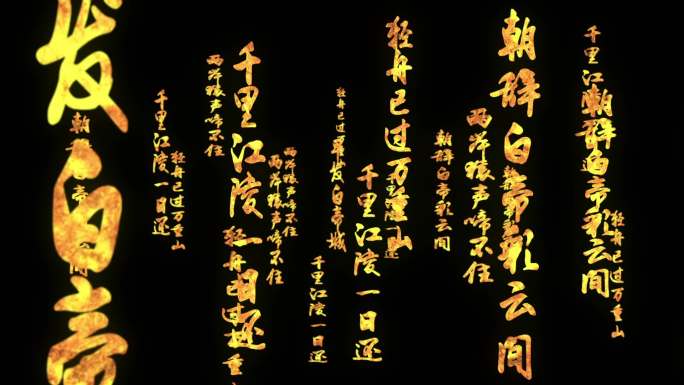 发白帝
朝辞白帝
间
千里江陵一日还
轻舟已过万重山
两岸猿声啼不住
千里江陵一日还
轻舟已过重
两岸猿声啼不住
两岸猿声啼不住
轻舟已过万
早发白帝城
千里江陵一日还
千里江陵一日还
轻舟已过万重山
朝辞白帝彩云间
两岸猿声啼不住
朝辞白帝彩云间
千里江陵
朝辞白帝彩云间
轻舟已过万重山